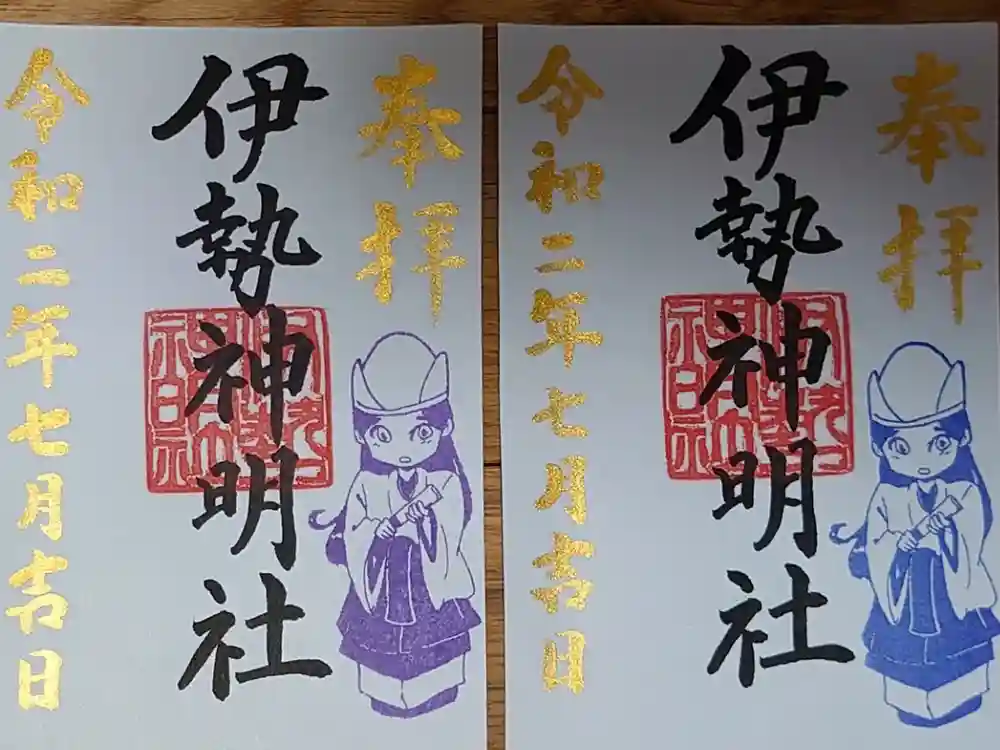 奉拝
伊勢神明社
令和二年七月吉日
奉拝
伊勢神明社
令和二年七月吉日